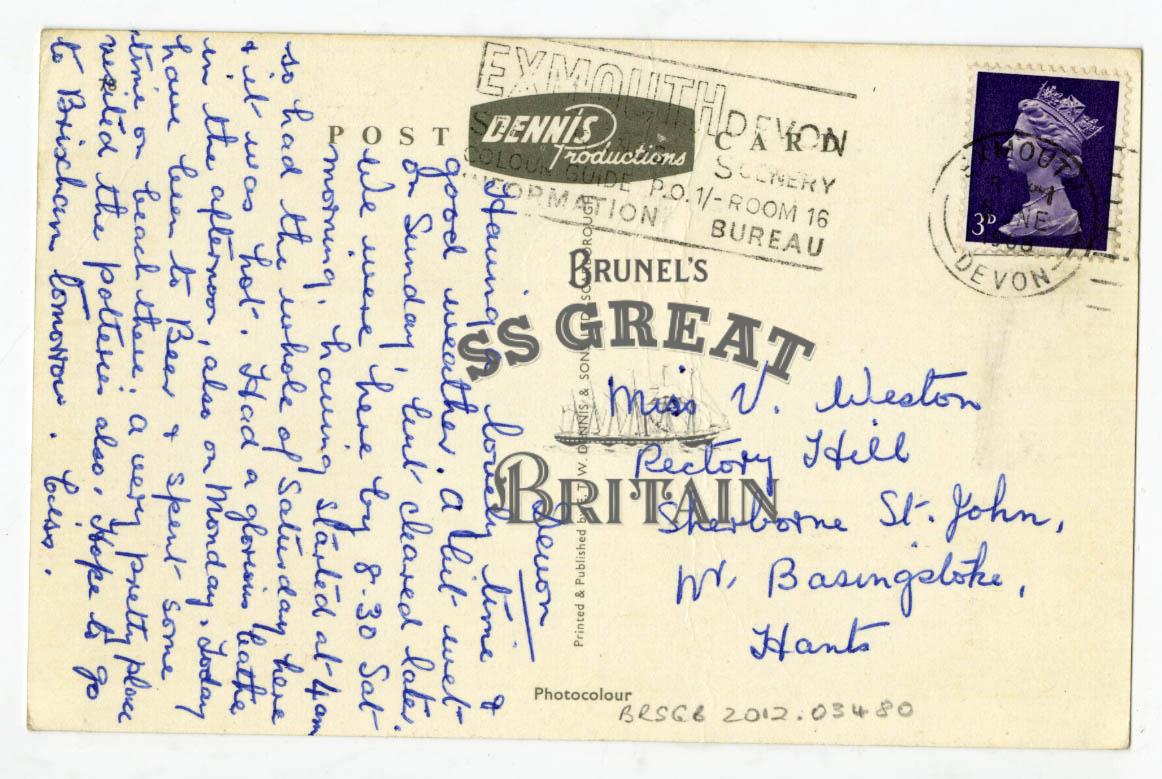 EXMOUTH
DEVON
SCENERY
COLOUR GUIDE P.O. 1/- ROOM 16
INFORMATION BUREAU
POST CARD
DENNIS
Productions
3D
EXMOUTH
DEVON
BRUNEL'S
SS GREAT
BRITAIN
Printed & Published by E.T.W. DENNIS & SONS LTD. SCARBOROUGH
Devon
Having a lovely time &
good weather. A bit wet
on Sunday but cleared later.
We were here by 8-30 Sat
morning, having started at 4am
so had the whole of Saturday here
& it was hot. Had a glorious bathe
in the afternoon, also on Monday. Today
have been to Beer & spent some
time on beach there. a very pretty place
visited the potteries also. Hope to go
to Brixham tomorrow.
Miss V. Weston
Rectory Hill
Sherborne St. John,
Nr. Basingstoke,
Hants
Photocolour
BRSGB 2012.03480